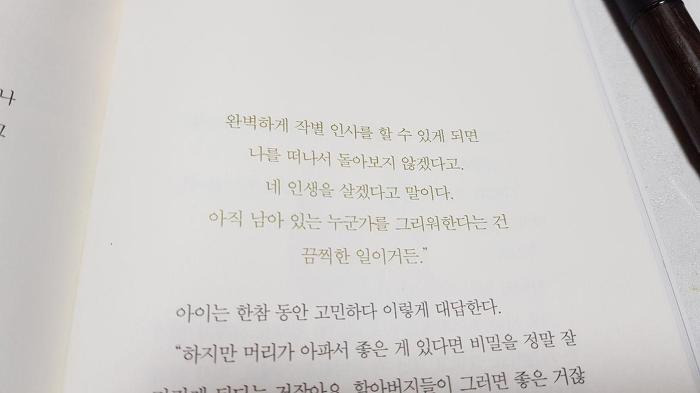 나
완벽하게 작별 인사를 할 수 있게 되면
나를 떠나서 돌아보지 않겠다고.
네 인생을 살겠다고 말이다.
아직 남아 있는 누군가를 그리워한다는 건
끔찍한 일이거든.”
아이는 한참 동안 고민하다 이렇게 대답한다.
“하지만 머리가 아파서 좋은 게 있다면 비밀을 정말 잘
된다는 거잖아요. 할아버지들이 그러면 좋은 거잖